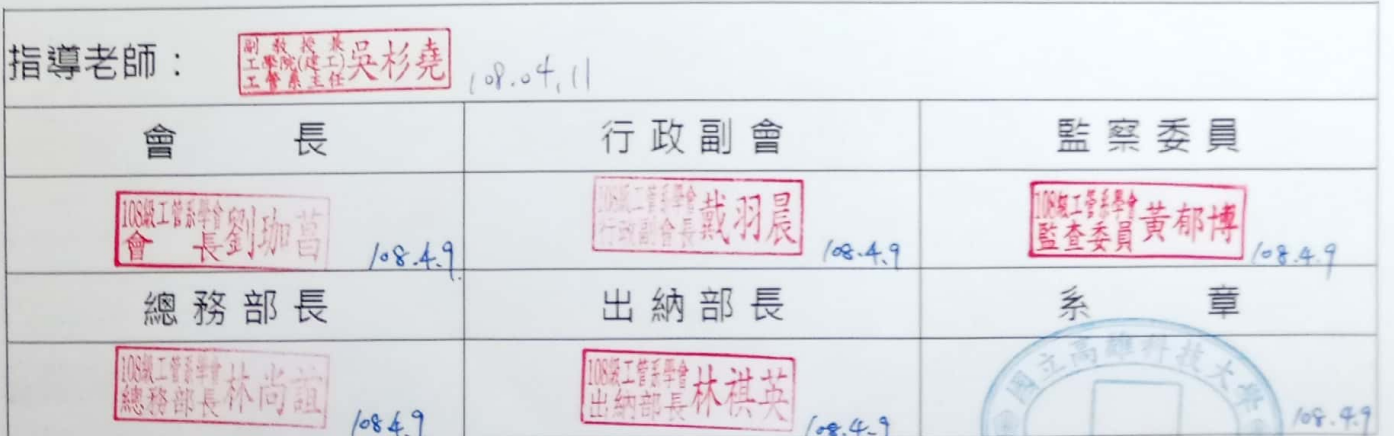 指導老師：
副教授兼
工學院(建工)
工管系主任
吳杉堯
108.04.11
會 長
行政副會
監察委員
108級工管系學會
會 長
劉珈菖
108.4.9
108級工管系學會
行政副會長
戴羽晨
108.4.9
108級工管系學會
監查委員
黃郁博
108.4.9
總務部長
出納部長
系 章
108級工管系學會
總務部長
林尚誼
108.4.9
108級工管系學會
出納部長
林祺英
108.4.9
國立高雄科技大學
108.4.9